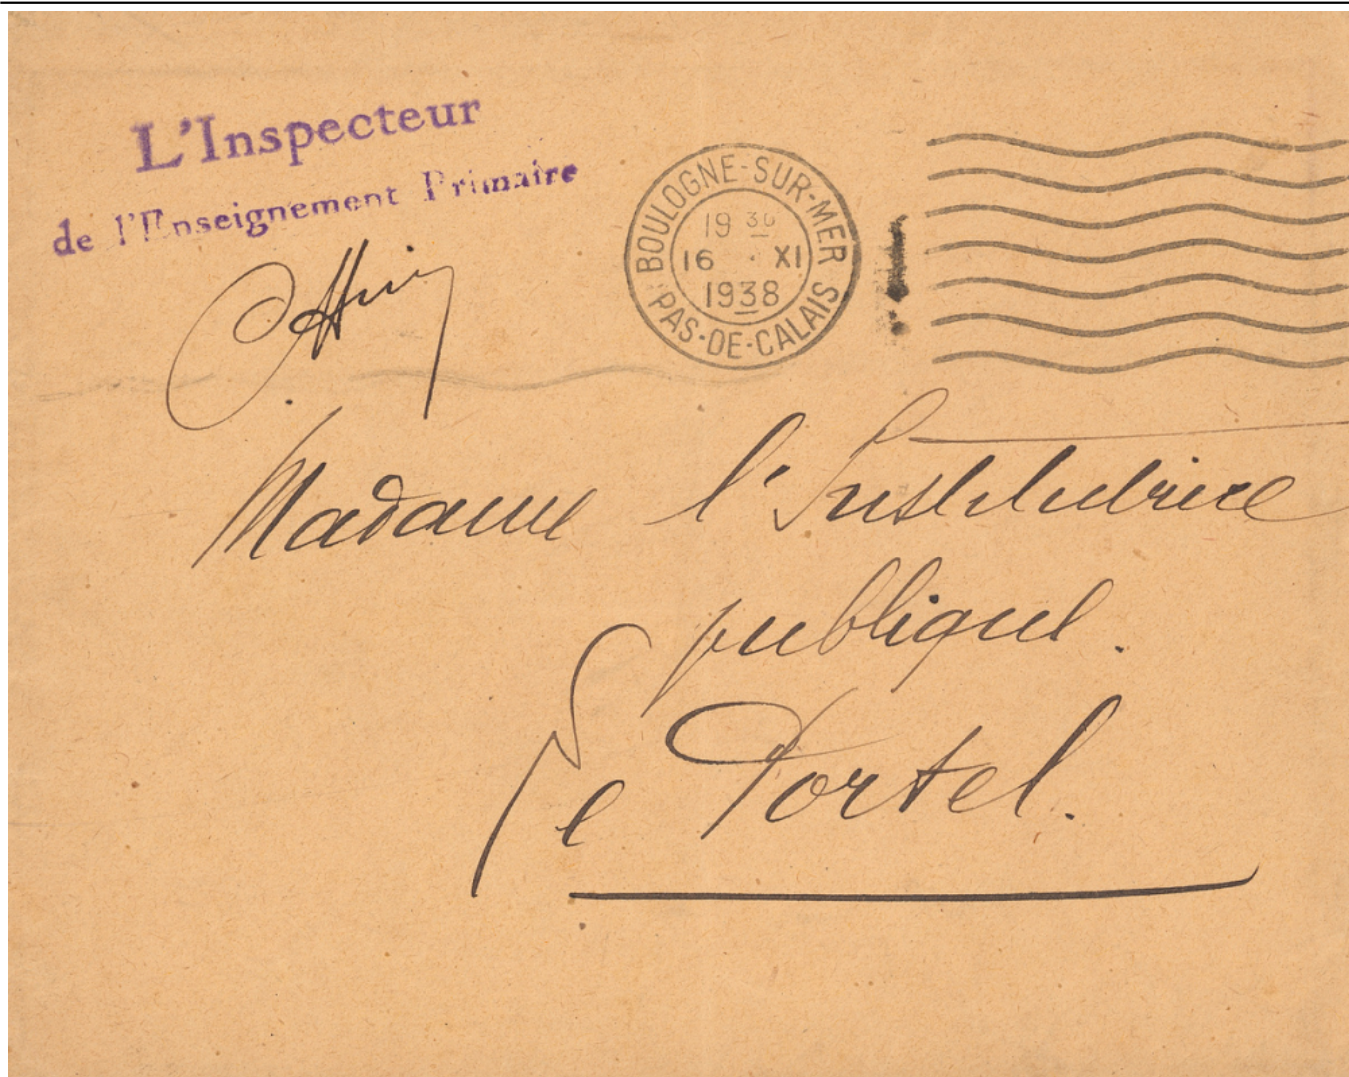 L'Inspecteur
de l'Enseignement Primaire
BOULOGNE-SUR-MER
19 30
16 XI
1938
PAS-DE-CALAIS
Madame l'Institutrice
publique.
Le Portel.